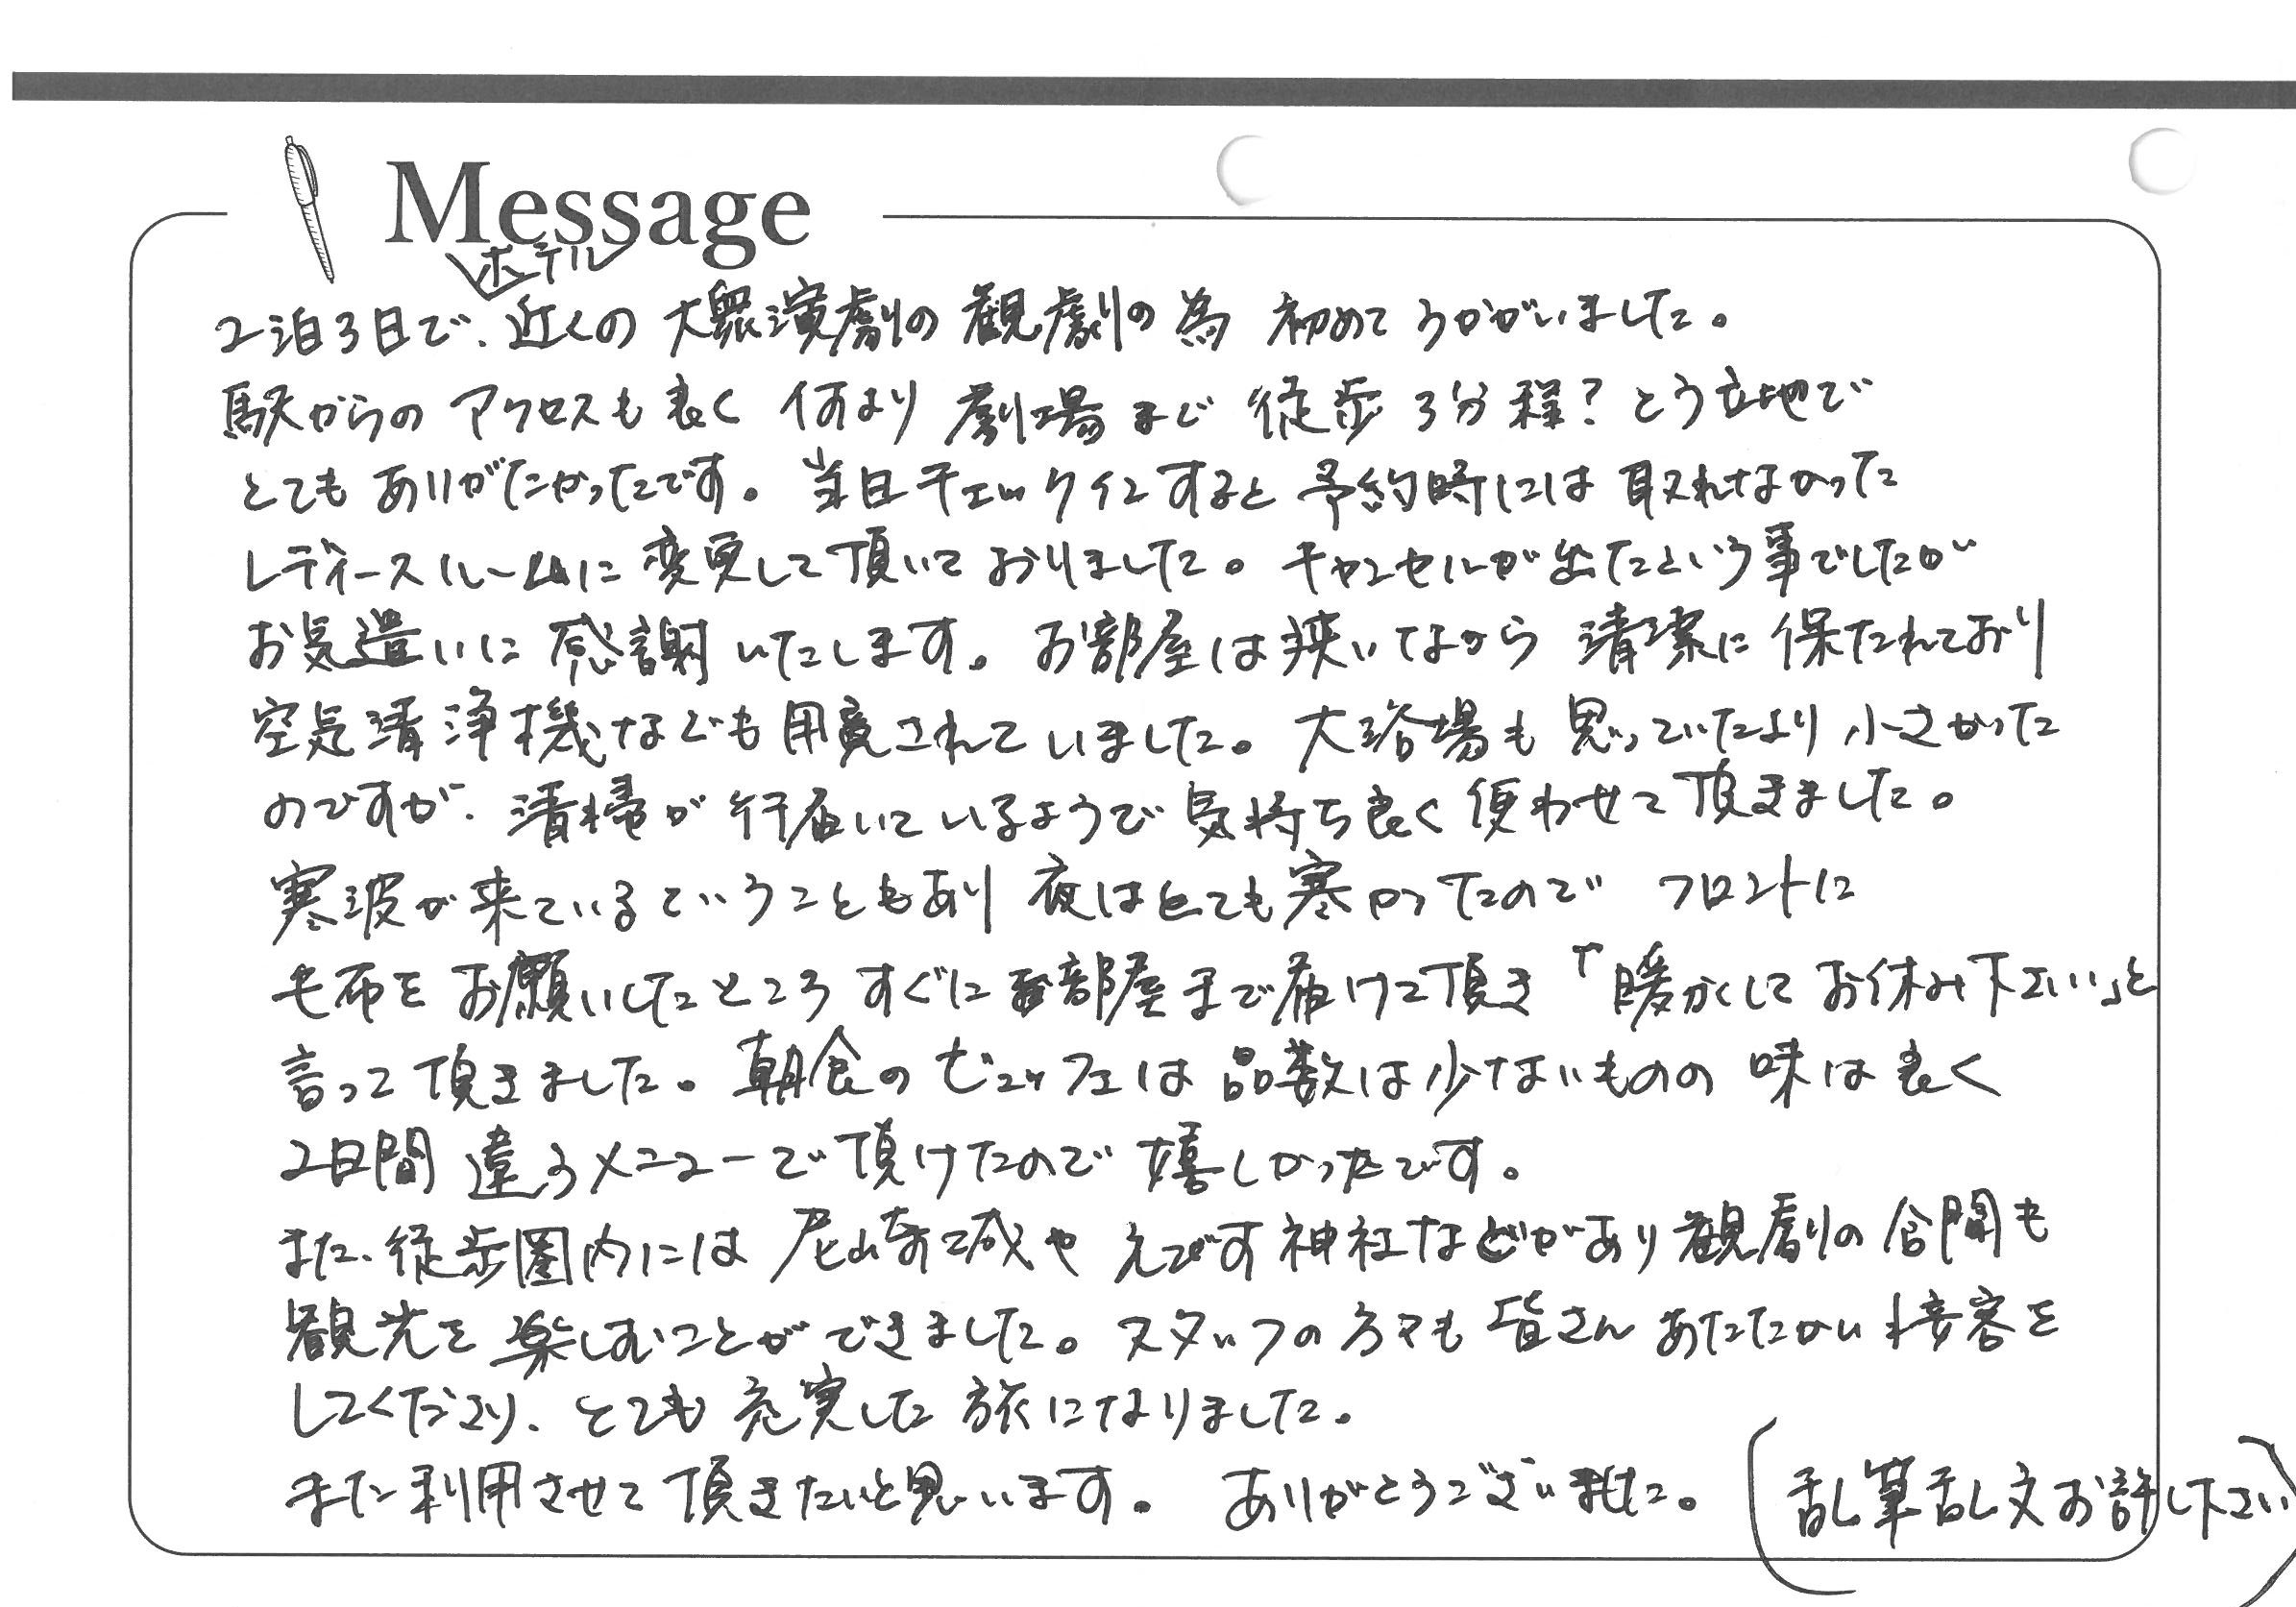 Message
ホテル
2泊3日で、近くの大衆演劇の観劇の為 初めてうかがいました。
駅からのアクセスも良く 何より劇場まで 徒歩3分程?とう立地で
とてもありがたかったです。当日チェックインすると予約時には取れなかった
レディースルームに変更して頂いておりました。キャンセルが出たという事でしたが
お気遣いに感謝いたします。お部屋は狭いながら 清潔に保たれており
空気清浄機なども用意されていました。大浴場も思っていたより小さかった
のですが、清掃が行届いているようで気持ち良く使わせて頂きました。
寒波が来ているということもあり 夜はとても寒かったので フロントに
毛布をお願いしたところ すぐにお部屋まで届けて頂き「暖かくしてお休み下さい」と
言って頂きました。朝食のビュッフェは品数は少ないものの 味は良く
2日間 違うメニューで頂けたので嬉しかったです。
また、徒歩圏内には 尼崎城や えびす神社などがあり観劇の合間も
観光を楽しむことができました。スタッフの方々も皆さんあたたかい接客を
してくださり、とても充実した旅になりました。
また利用させて頂きたいと思います。 ありがとうございました。(乱筆乱文お許し下さい)